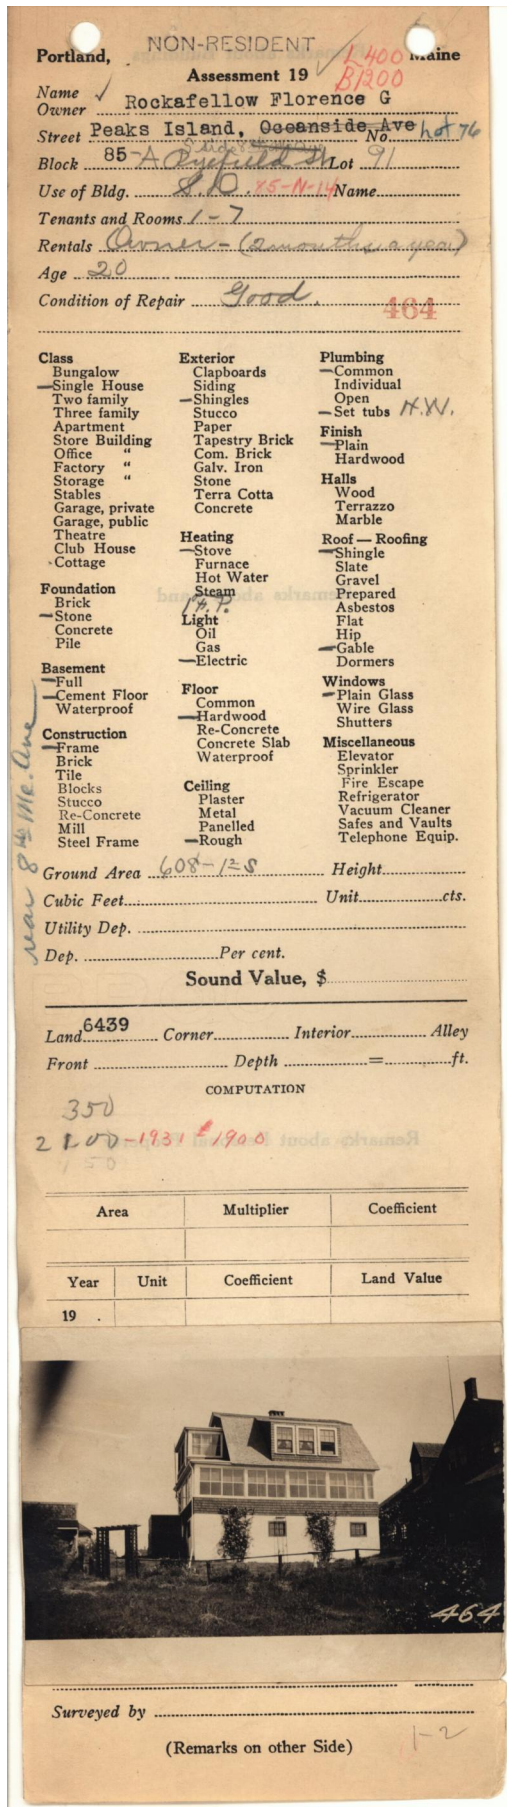 NON-RESIDENT
Portland, Maine
L400
Assessment 19
B1200
Name
Owner Rockafellow Florence G
Street Peaks Island, Oceanside Ave No. Lot 76
Block 85-A St Lot 91
Use of Bldg. S.D. 85-N-14 Name
Tenants and Rooms 1-7
Rentals Owner - (2 months a year)
Age 20
Condition of Repair Good.
464
Class
Bungalow
Single House
Two family
Three family
Apartment
Store Building
Office "
Factory "
Storage "
Stables
Garage, private
Garage, public
Theatre
Club House
Cottage
Foundation
Brick
Stone
Concrete
Pile
Basement
Full
Cement Floor
Waterproof
Construction
Frame
Brick
Tile
Blocks
Stucco
Re-Concrete
Mill
Steel Frame
Exterior
Clapboards
Siding
Shingles
Stucco
Paper
Tapestry Brick
Com. Brick
Galv. Iron
Stone
Terra Cotta
Concrete
Heating
Stove
Furnace
Hot Water
Steam
1 F.P.
Light
Oil
Gas
Electric
Floor
Common
Hardwood
Re-Concrete
Concrete Slab
Waterproof
Ceiling
Plaster
Metal
Panelled
Rough
Plumbing
Common
Individual
Open
Set tubs H.W.
Finish
Plain
Hardwood
Halls
Wood
Terrazzo
Marble
Roof — Roofing
Shingle
Slate
Gravel
Prepared
Asbestos
Flat
Hip
Gable
Dormers
Windows
Plain Glass
Wire Glass
Shutters
Miscellaneous
Elevator
Sprinkler
Fire Escape
Refrigerator
Vacuum Cleaner
Safes and Vaults
Telephone Equip.
rear 8 Me. Ave
Ground Area 608-1½ S Height
Cubic Feet Unit cts.
Utility Dep.
Dep. Per cent.
Sound Value, $
Land 6439 Corner Interior Alley
Front Depth = ft.
COMPUTATION
350
2100-1931 $1900
150
Area Multiplier Coefficient
Year Unit Coefficient Land Value
19 .
464
Surveyed by
(Remarks on other Side)
1-2